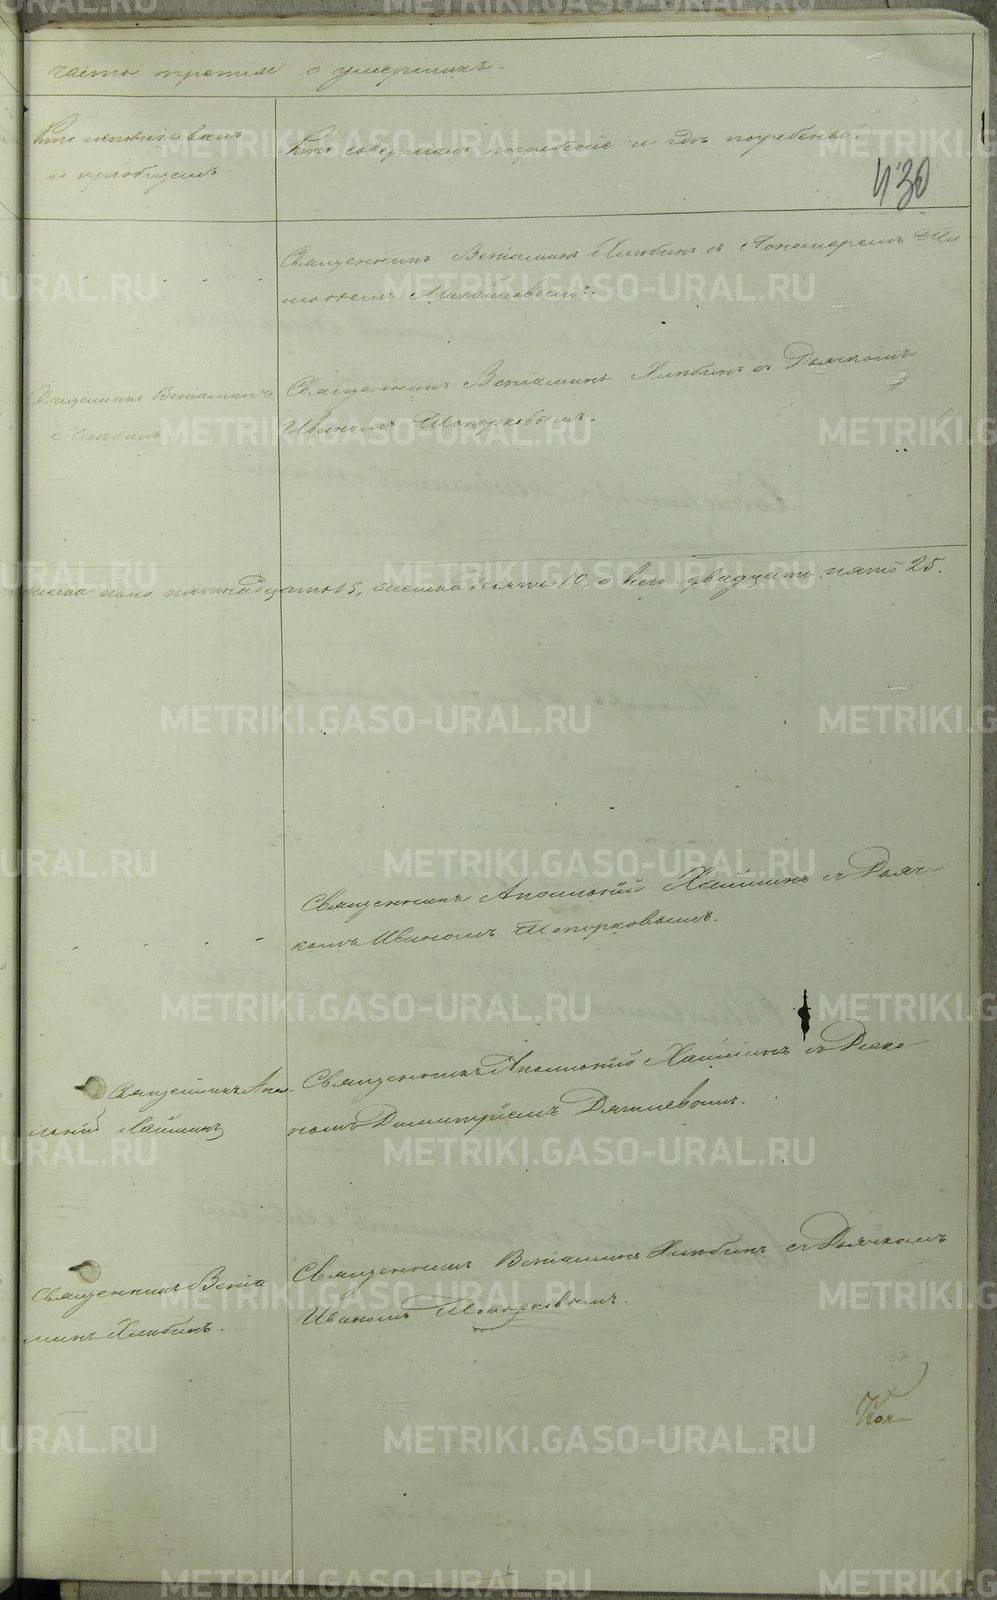 часть третія о умершихъ.
Кто исповѣдывалъ
и пріобщалъ
Кто совершалъ погребеніе и гдѣ погребены.
430
Священникъ Веніаминъ Хлыбинъ съ Пономаремъ Ти-
моѳеемъ Михайловымъ.
Священникъ Веніаминъ
Хлыбинъ
Священникъ Веніаминъ Хлыбинъ съ Дьячкомъ
Иваномъ Топорковымъ.
пола пятнадцать 15, женска десять 10, а всего двадцать пять 25.
Священникъ Аполлоній Ляпинъ съ Дьяч-
комъ Иваномъ Топорковымъ.
Священникъ Апол-
лоній
Священникъ Аполлоній съ Діако-
номъ Димитріемъ Дягилевымъ.
Священникъ Веніа
минъ Хлыбинъ.
Священникъ Веніаминъ Хлыбинъ съ Дьячкомъ
Иваномъ Топорковымъ.
METRIKI.GASO-URAL.RU